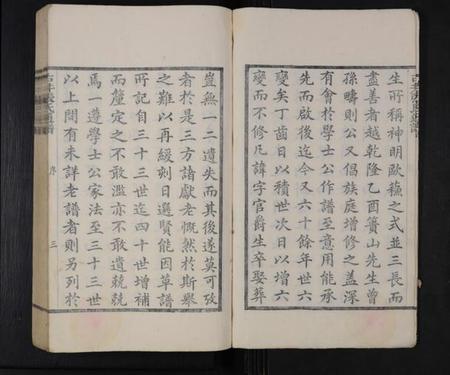 生所稱神明歐蘓之式並三長而
盡善者越乾隆乙酉簣山先生曽
孫疇則公又倡族庭增修之盖深
有會於學士公作譜至意用能承
先而啟後迄今又六十餘年世六
變矣丁齒日以積世次日以增六
變而不修凡諱字官爵生卒娶葬
豈無一二遺失而其後遂莫可攷
者於是三方諸獻老慨然於斯舉
之難以再緩刻日遴賢能因草譜
所記自三十三世迄四十世增補
而釐定之不敢濫亦不敢遺兢兢
焉一遵學士公家法至三十三世
以上間有未詳老譜者則另列於
序
三